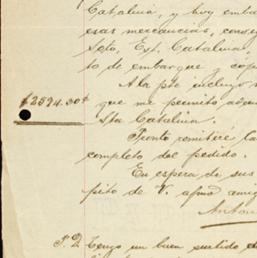 Catalina, y hoy emba
esas mercancias, conse
Seto, Esp. Catalina,
to de embarque y cop
A la pte incluyo
$2594.30¢ que me permito
Sta Catalina.
Pronto remitiré la
completo del pedido.
En espera de sus
pito de V. afmo amig
Anton
P.D. Tengo un buen surtido d